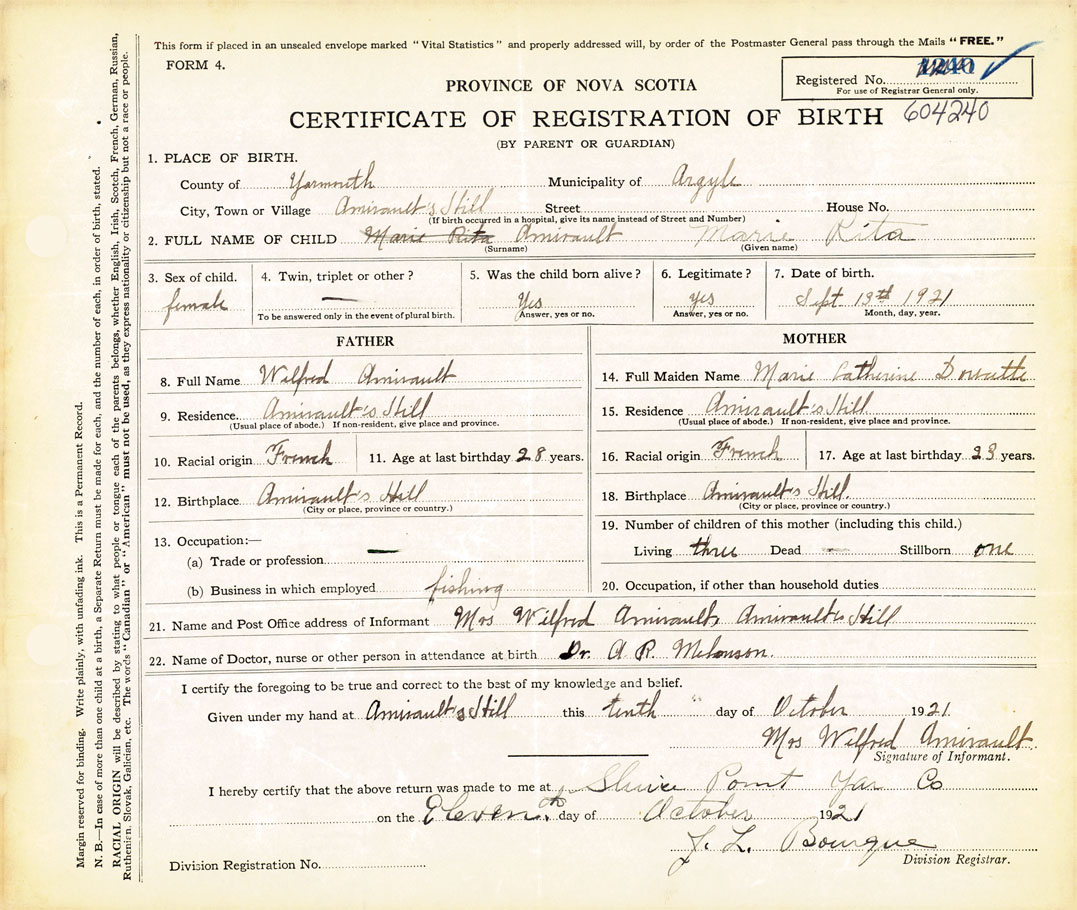 This form if placed in an unsealed envelope marked "Vital Statistics" and properly addressed will, by order of the Postmaster General pass through the Mails "FREE."
FORM 4.
Registered No.
For use of Registrar General only.
604240
PROVINCE OF NOVA SCOTIA
CERTIFICATE OF REGISTRATION OF BIRTH
(BY PARENT OR GUARDIAN)
1. PLACE OF BIRTH.
County of Yarmouth Municipality of Argyle
City, Town or Village Amirault's Hill Street House No.
(If birth occurred in a hospital, give its name instead of Street and Number)
2. FULL NAME OF CHILD Marie Rita Amirault Marie Rita
(Surname) (Given name)
3. Sex of child. 4. Twin, triplet or other? 5. Was the child born alive? 6. Legitimate? 7. Date of birth.
female — Yes yes Sept 19th 1921
To be answered only in the event of plural birth. Answer, yes or no. Answer, yes or no. Month, day, year.
FATHER MOTHER
8. Full Name Wilfred Amirault
14. Full Maiden Name Marie Catherine
9. Residence. Amirault's Hill
(Usual place of abode.) If non-resident, give place and province.
15. Residence Amirault's Hill
(Usual place of abode.) If non-resident, give place and province.
10. Racial origin French 11. Age at last birthday 28 years.
16. Racial origin French 17. Age at last birthday 23 years.
12. Birthplace Amirault's Hill
(City or place, province or country.)
18. Birthplace Amirault's Hill.
(City or place, province or country.)
13. Occupation:—
(a) Trade or profession —
(b) Business in which employed fishing
19. Number of children of this mother (including this child.)
Living three Dead — Stillborn one
20. Occupation, if other than household duties
21. Name and Post Office address of Informant Mrs Wilfred Amirault, Amirault's Hill
22. Name of Doctor, nurse or other person in attendance at birth Dr. A R. Melanson.
I certify the foregoing to be true and correct to the best of my knowledge and belief.
Given under my hand at Amirault's Hill this tenth day of October 1921
Mrs Wilfred Amirault.
Signature of Informant.
I hereby certify that the above return was made to me at Sluice Point Yar Co
on the Eleventh day of October 1921
J. L. Bourque
Division Registrar.
Division Registration No.
Margin reserved for binding. Write plainly, with unfading ink. This is a Permanent Record.
N. B.—In case of more than one child at a birth, a Separate Return must be made for each, and the number of each, in order of birth, stated.
RACIAL ORIGIN will be described by stating to what people or tongue each of the parents belongs, whether English, Irish, Scotch, French, German, Russian,
Ruthenian, Slovak, Galician, etc. The words "Canadian" or "American" must not be used, as they express nationality or citizenship but not a race or people.